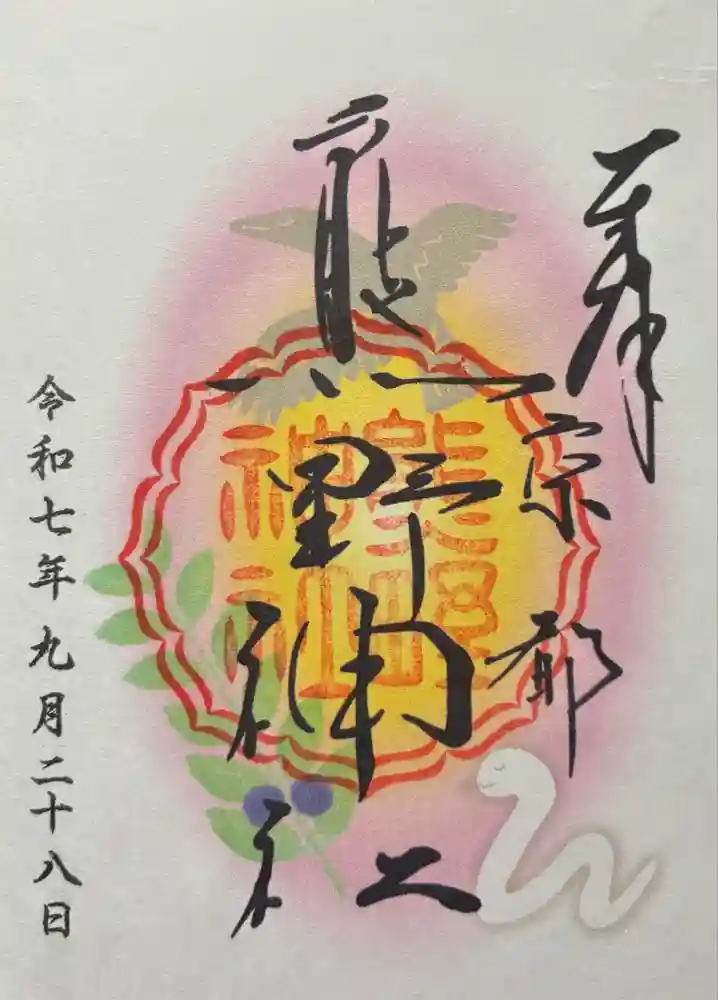 奉拝
京都
熊野神社
熊野
神社
令和七年九月二十八日